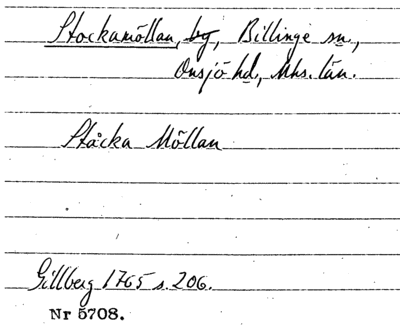 Stockamöllan, by, Billinge sn,
Onsjö hd, Mhs. län.
Ståcka Möllan
Gillberg 1765 s. 206.
Nr 5708.